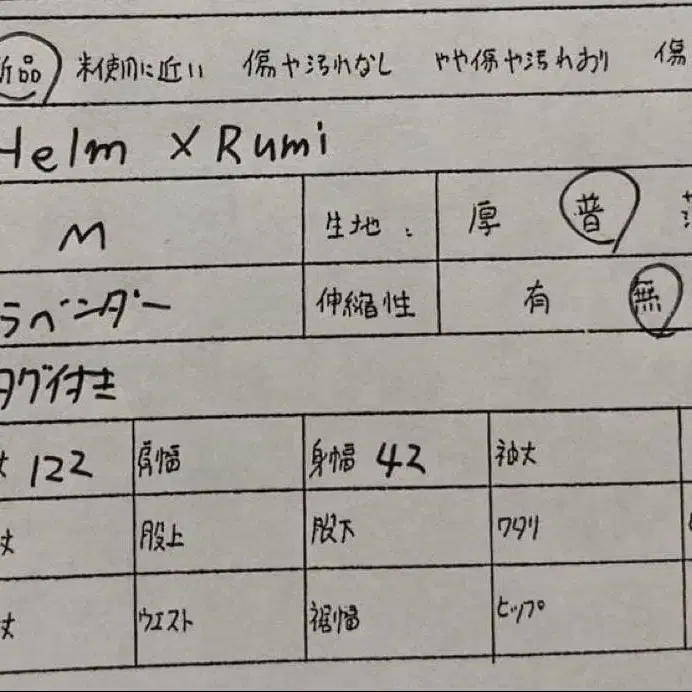 新品 未使用に近い 傷や汚れなし やや傷や汚れあり 傷
Helm × Rumi
M 生地: 厚 普
ラベンダー 伸縮性 有 無
タグ付き
丈 122 肩幅 身幅 42 袖丈
丈 股上 股下 ワタリ
丈 ウエスト 裾幅 ヒップ